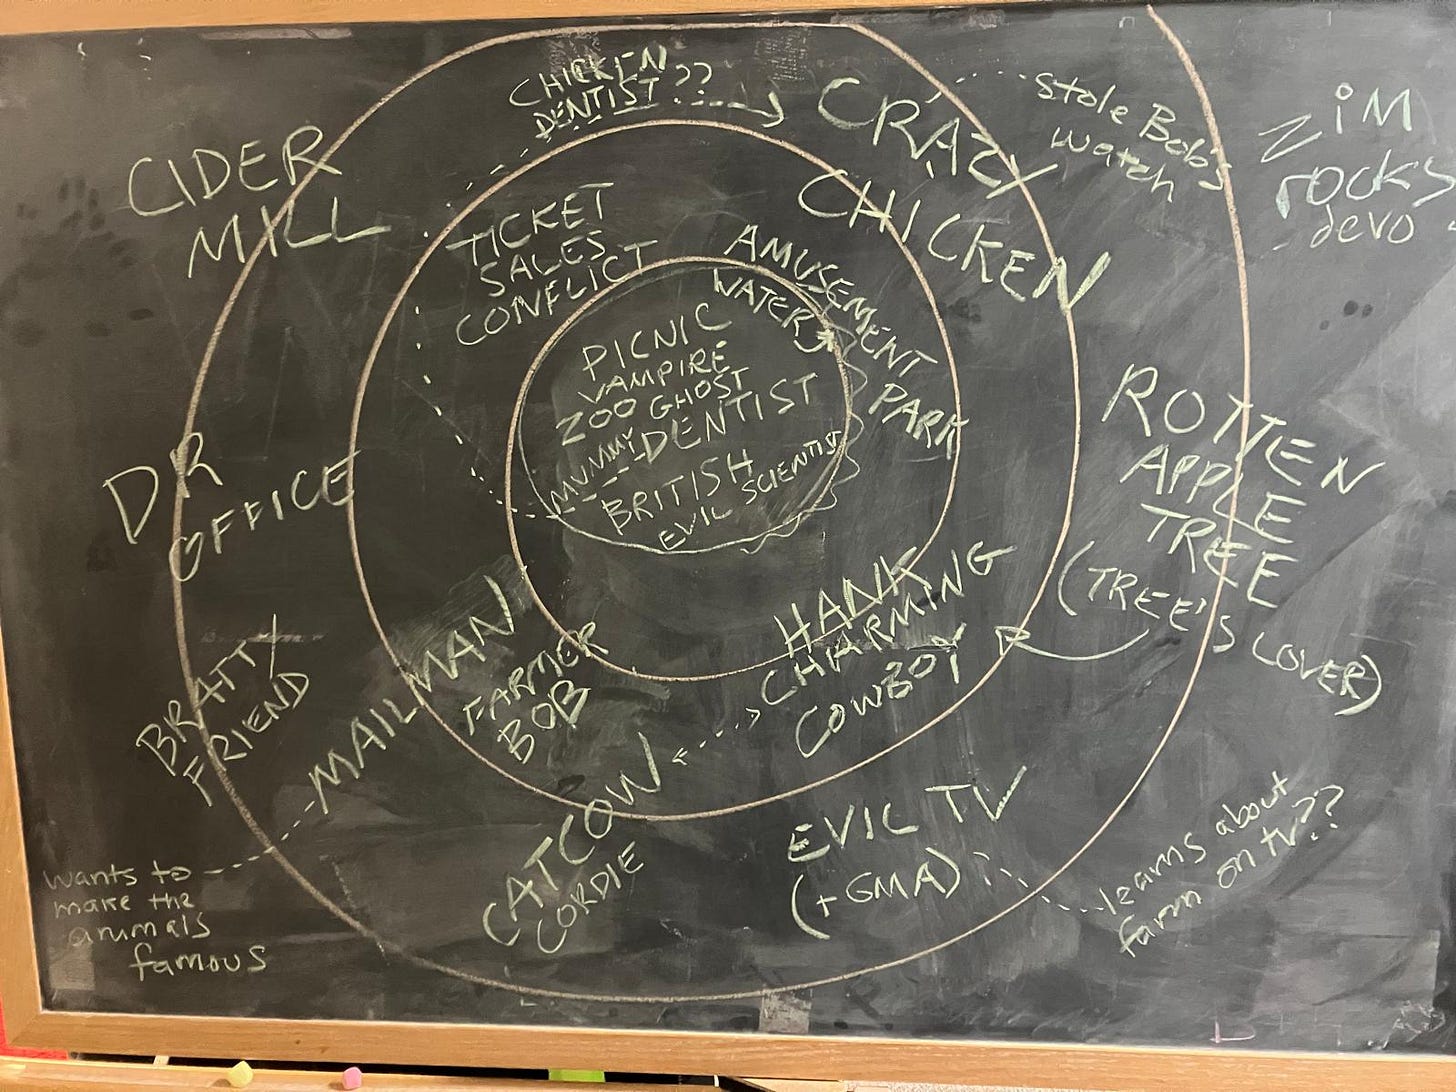 CHICKEN
DENTIST??
CRAZY
CHICKEN
stole Bob's
watch
ZIM
rocks
devo
CIDER
MILL
TICKET
SALES
CONFLICT
AMUSEMENT
PARK
WATER
PICNIC
VAMPIRE
ZOO GHOST
MUMMY DENTIST
BRITISH
EVIL SCIENTIST
ROTTEN
APPLE
TREE
(TREE'S LOVER)
DR
OFFICE
HANK
CHARMING
COWBOY
BRATTY
FRIEND
MAILMAN
FARMER
BOB
CATCOW
CORDIE
EVIL TV
(+GMA)
learns about
farm on tv??
wants to
make the
animals
famous